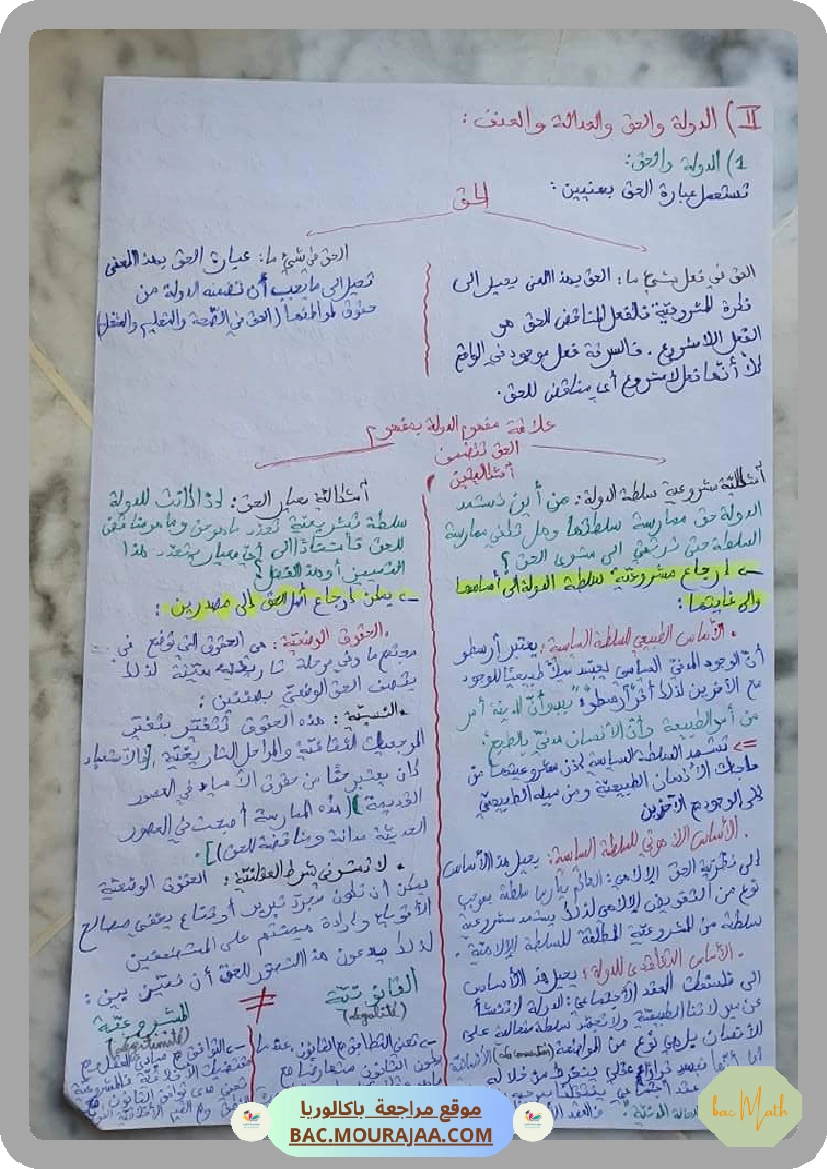 II) الدولة والحق والعدالة والعنف:
1) الدولة والحق:
تستعمل عبارة الحق بمعنيين:
الحق
الحق في فعل شيء ما: الحق بهذا المعنى يحيل الى
فكرة المشروعية فالفعل المناقض للحق هو
الفعل اللامشروع. فالسرقة فعل موجود في الواقع
إلا أنها فعل لامشروع أي مناقض للحق.
الحق في شيء ما: عبارة الحق بهذا المعنى
تحيل الى ما يجب أن تضمنه الدولة من
حقوق لمواطنيها (الحق في الصحة والتعليم والشغل)
علاقة مفهوم الدولة بمفهوم
الحق تتضمن
أشكاليتين
مشروعية سلطة الدولة: من أين تستمد
الدولة حق ممارسة سلطتها وهل تكفي ممارسة
السلطة حتى ترتقي الى مستوى الحق؟
ارجاع مشروعية سلطة الدولة الى أساسها
والى غايتها:
. الأساس الطبيعي للسلطة السياسية: يعتبر أرسطو
أن الوجود المدني السياسي يجسد ميلا طبيعيا للوجود
مع الآخرين لذلك أقر أرسطو: "يبدو أن المدينة أمر
من أمور الطبيعة وأن الانسان مدني بالطبع"
=> تستمد السلطة السياسية إذن مشروعيتها من
حاجيات الانسان الطبيعية ومن ميله الطبيعي
الى الوجود مع الآخرين
. الأساس اللاهوتي للسلطة السياسية: يحيل هذا الأساس
إلى نظرية الحق الإلاهي: الحاكم يمارس سلطة بموجب
نوع من التفويض الإلاهي لذلك يستمد مشروعية
سلطة من المشروعية المطلقة للسلطة الإلاهية.
. الأساس التعاقدي للدولة: يحيل هذا الأساس
الى فلسفات العقد الاجتماعي: الدولة لا تنشأ
عن ميولاتنا الطبيعية ولا تجسد سلطة متعالية على
الانسان بل هي نوع من المواضعة
معيار الحق: إذا كانت للدولة
سلطة تشريعية تحدد ما هو حق وما هو مناقض
للحق فاستنادا الى أي معيار يتحدد هذا
التمييز أو هذا الفصل؟
يمكن ارجاع أصل الحق إلى مصدرين:
. الحقوق الوضعية: هي الحقوق التي توضع في
مجتمع ما وفي مرحلة تاريخية معينة لذلك
يتصف الحق الوضعي بصفتين:
. النسبية: هذه الحقوق تتغير بتغير
المرجعيات الثقافية والمراحل التاريخية [الاستعباد
كان يعتبر حقا من حقوق الأسياد في العصور
القديمة (هذه الممارسة أصبحت في العصور
الحديثة مدانة ومناقضة للحق)].
. لا تستوفي شرط العقلانية: الحقوق الوضعية
يمكن أن تكون مجرد تبرير أو قناع يخفي مصالح
الأقوياء وإرادة هيمنتهم على المستضعفين
لذلك يدعونا هذا التصور للحق أن نميز بين:
القانونية
(légalité)
≠
المشروعية
(légitimité)
موقع مراجعة باكالوريا
BAC.MOURAJAA.COM
bac Math